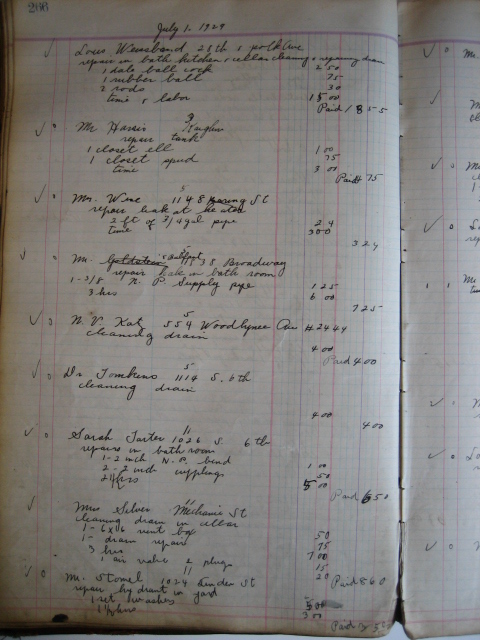 266
July 1. 1929
Louis Weissband 28th & polk Ave
repair in bath kitchen & cellar cleaning & repairing drain
1 dale ball cock 2 50
1 rubber ball 75
2 rods 30
time & labor 15 00
Paid 18 55
3
Mr Harris Kaighn
repair tank
1 closet ell 1 00
1 closet spud 75
time 3 00
Paid 4 75
5
Mr. Wine 1148 St
repair leak at heater
2 ft of 3/4 gal pipe 24
time 300
3 24
5
Mr. Goldstein 1538 Broadway
repair leak in bath room
1-3/8 N. P. Supply pipe 1 25
3 hrs 6 00
7 25
5
N. V. Katz 559 Woodlynne Ave # 2444
cleaning drain
4 00
Paid 4 00
5
Dr Tomkins 1114 S. 6th
cleaning drain
4 00
4 00
11
Sarah Tarter 1026 S. 6th
repairs in bath room
1-2 inch N. P. bend 1 00
2-2 inch cupplings 50
2 1/2 hrs 5 00
Paid 6 50
11
Mrs Silver Mechanic St
cleaning drain in cellar
1-6x6 vent box 50
1- drain repair 75
3 hrs 7 00
1 air valve 15
2 plugs 20
Paid 8 60
11
Mr. Stomel 1024 Linden St
repair hydrant in yard
1 set washers 50
1 1/2 hrs 3 00
Paid 3 50